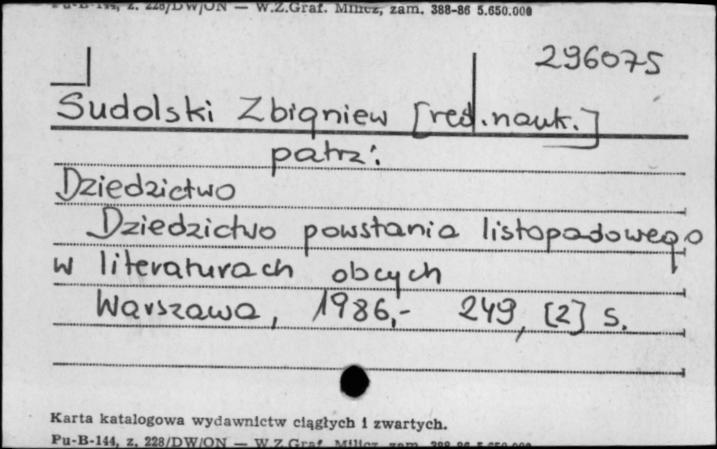 Pu-B-144, z. 228/DW/ON — W.Z.Graf. Milicz, zam. 388-86 5.650.000
296075
Sudolski Zbigniew [red. nauk.]
patrz:
Dziedzictwo
Dziedzictwo powstania listopadowego
w literaturach obcych
Warszawa, 1986,- 249, [2] s.
Karta katalogowa wydawnictw ciągłych i zwartych.
Pu-B-144, z. 228/DW/ON — W.Z.Graf. Milicz zam. 388-86 5.650.000